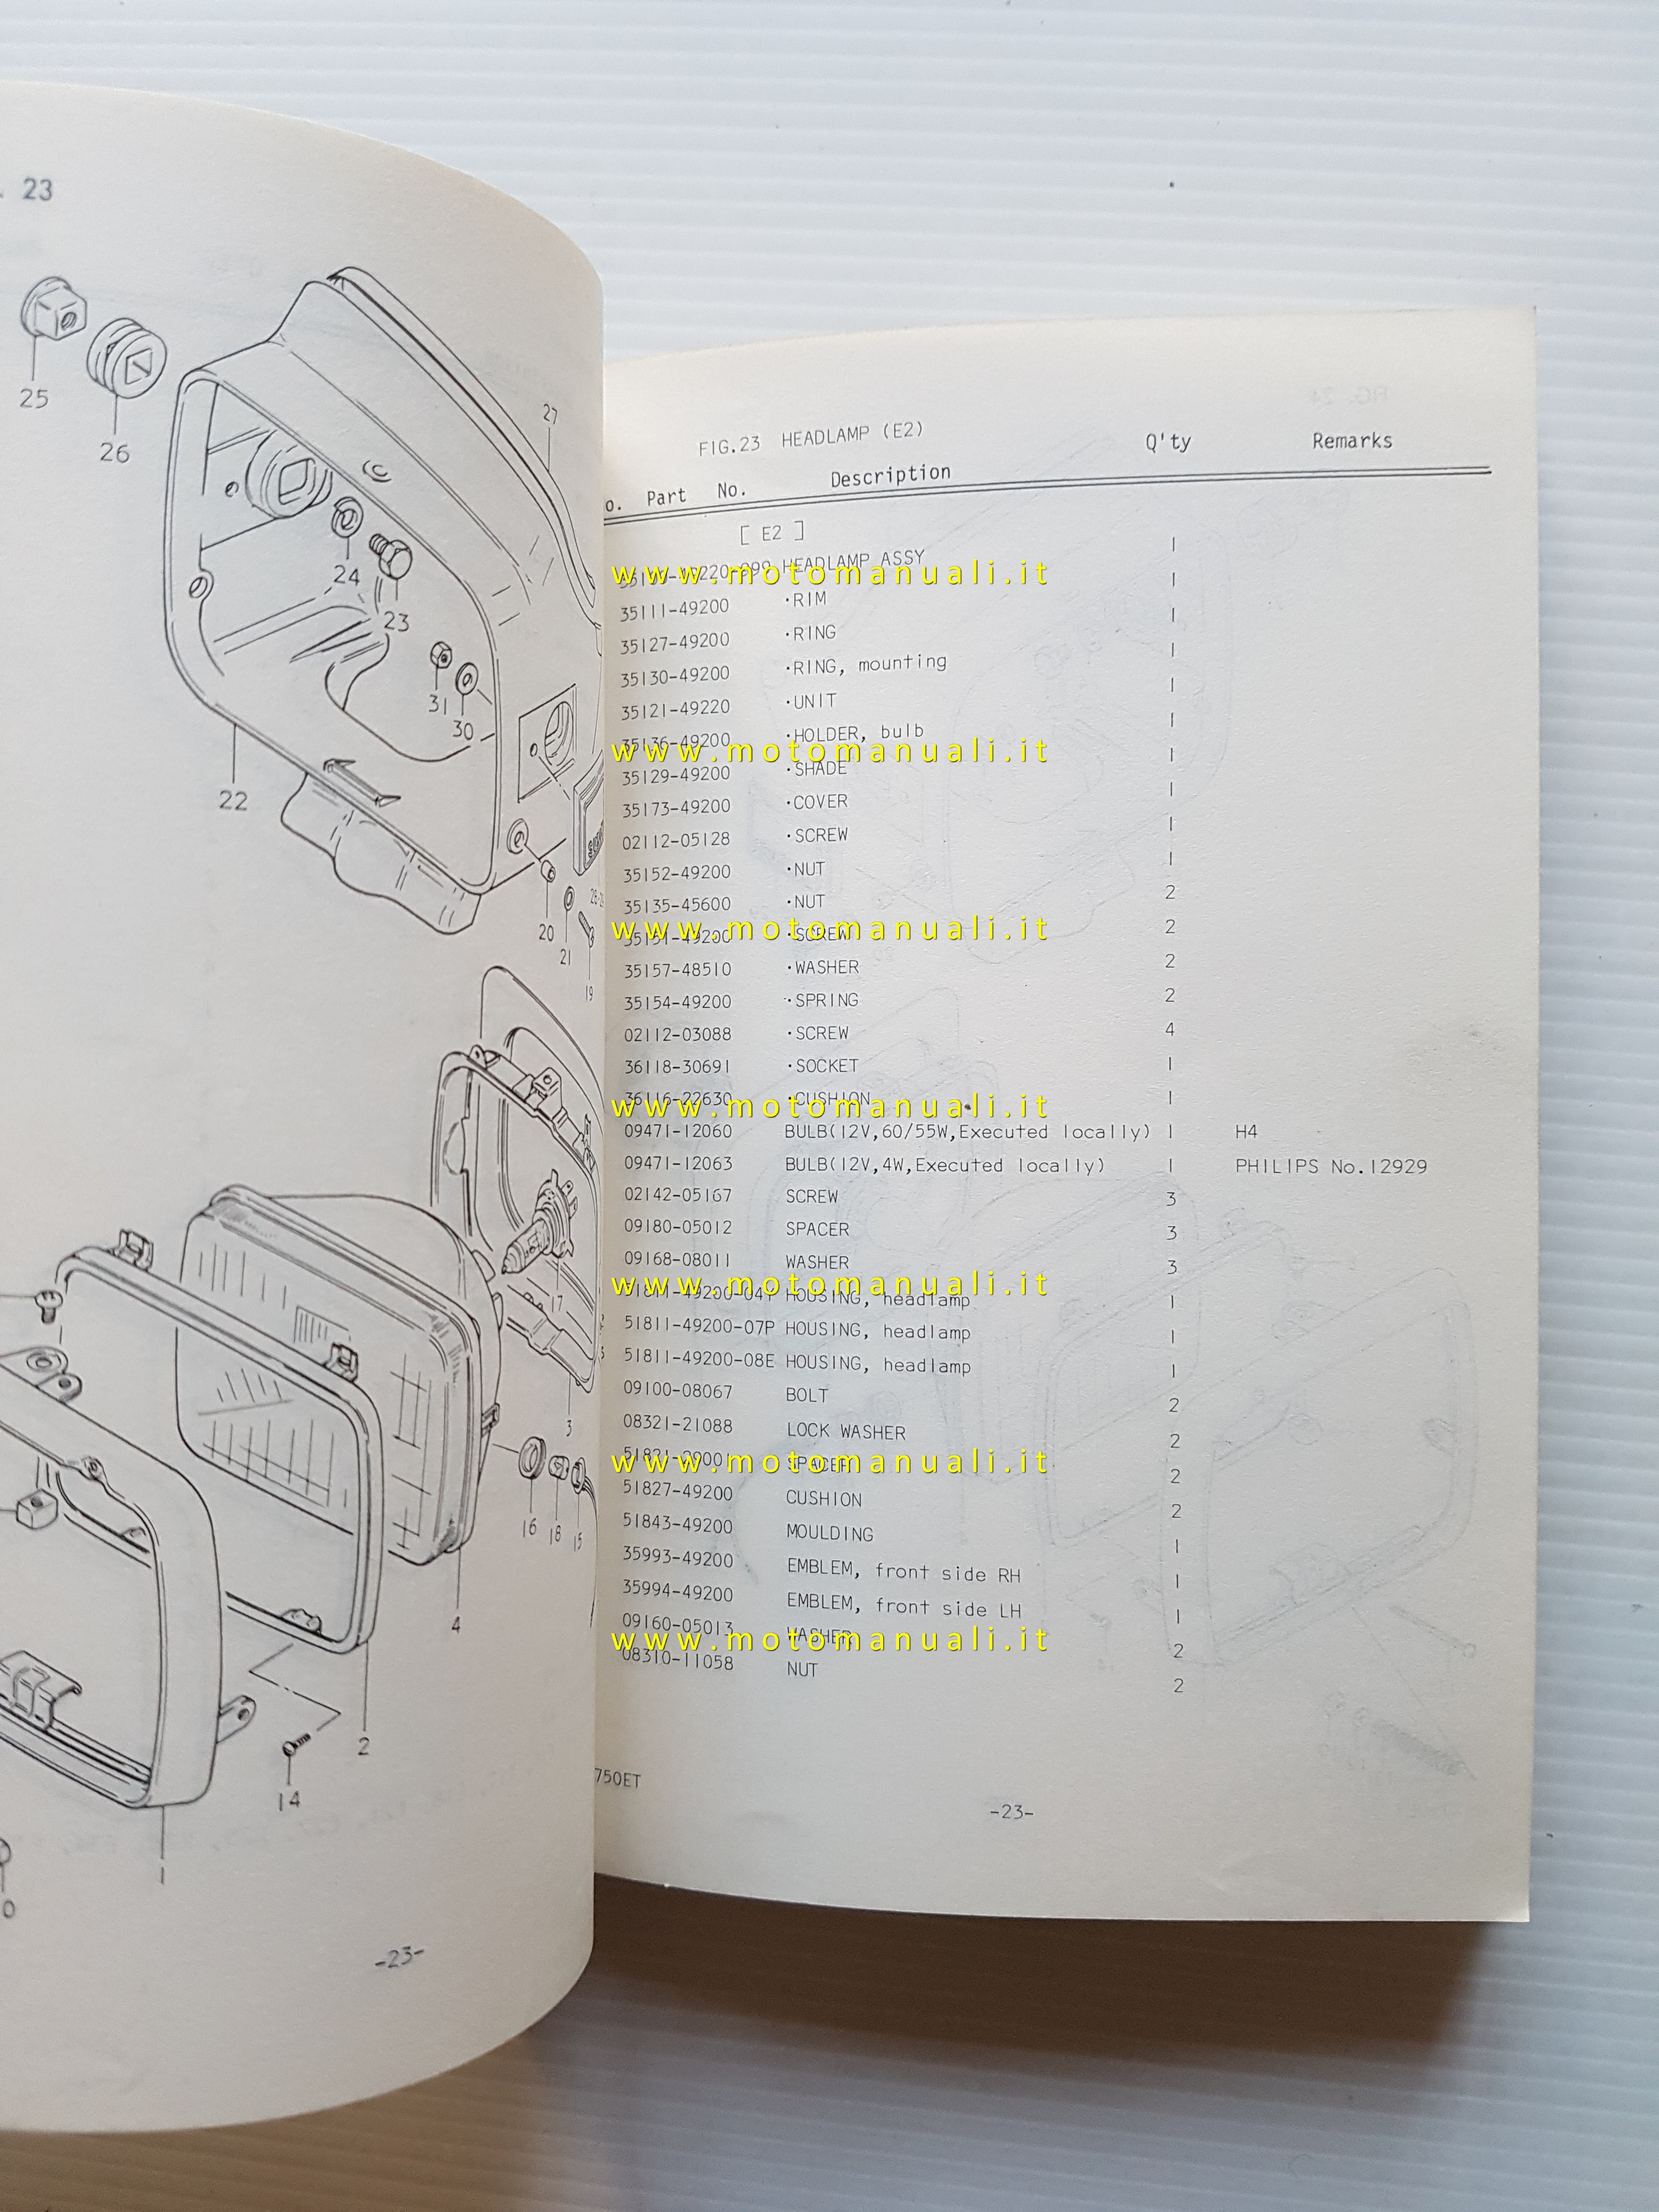 . 23
25
26
27
24
23
31
30
22
20
21
19
17
3
16
18
15
4
2
14
1
0
-23-
FIG.23 HEADLAMP (E2)
o. Part No. Description Q'ty Remarks
[ E2 ]
HEADLAMP ASSY 1
35111-49200 ·RIM 1
35127-49200 ·RING 1
35130-49200 ·RING, mounting 1
35121-49220 ·UNIT 1
35136-49200 ·HOLDER, bulb 1
35129-49200 ·SHADE 1
35173-49200 ·COVER 1
02112-05128 ·SCREW 1
35152-49200 ·NUT 1
35135-45600 ·NUT 2
35151-49200 ·SCREW 2
35157-48510 ·WASHER 2
35154-49200 ·SPRING 2
02112-03088 ·SCREW 4
36118-30691 ·SOCKET 1
36116-22630 ·CUSHION 1
09471-12060 BULB(12V,60/55W,Executed locally) 1 H4
09471-12063 BULB(12V,4W,Executed locally) 1 PHILIPS No.12929
02142-05167 SCREW 3
09180-05012 SPACER 3
09168-08011 WASHER 3
HOUSING, headlamp 1
51811-49200-07P HOUSING, headlamp 1
51811-49200-08E HOUSING, headlamp 1
09100-08067 BOLT 2
08321-21088 LOCK WASHER 2
SPACER 2
51827-49200 CUSHION 2
51843-49200 MOULDING 1
35993-49200 EMBLEM, front side RH 1
35994-49200 EMBLEM, front side LH 1
09160-05013 WASHER 2
08310-11058 NUT 2
750ET
-23-
www.motomanuali.it
www.motomanuali.it
www.motomanuali.it
www.motomanuali.it
www.motomanuali.it
www.motomanuali.it
www.motomanuali.it